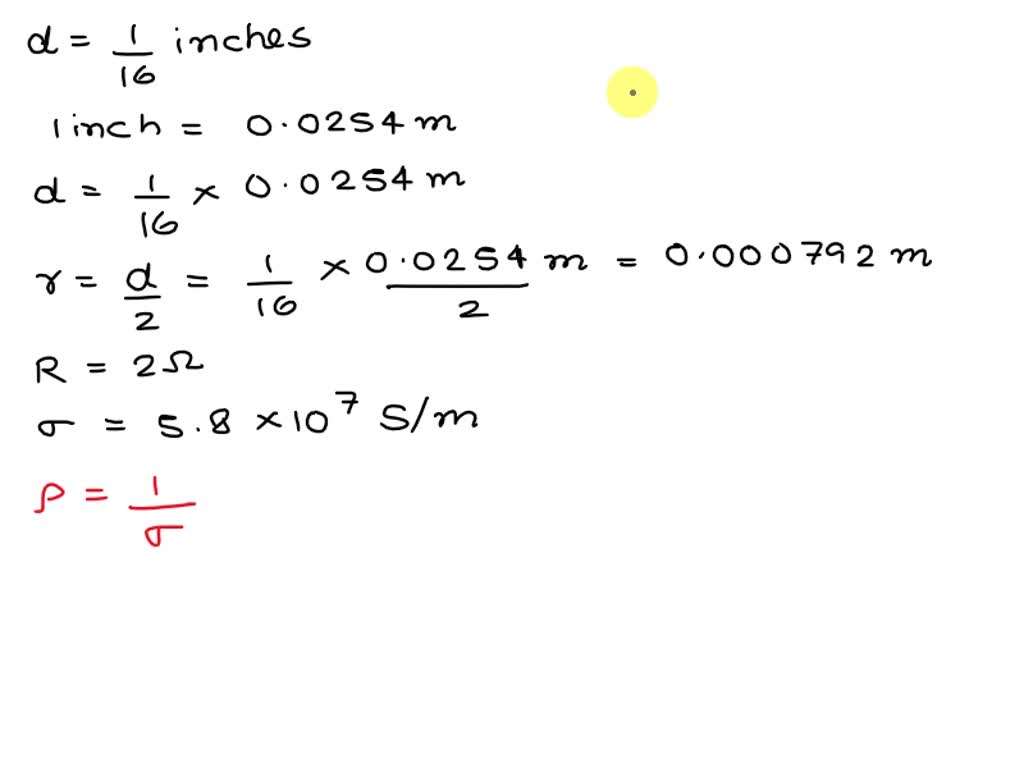 d = 1/16 inches
1 inch = 0.0254 m
d = 1/16 × 0.0254 m
r = d/2 = 1/16 × 0.0254/2 m = 0.000792 m
R = 2Ω
σ = 5.8 × 10⁷ S/m
ρ = 1/σ